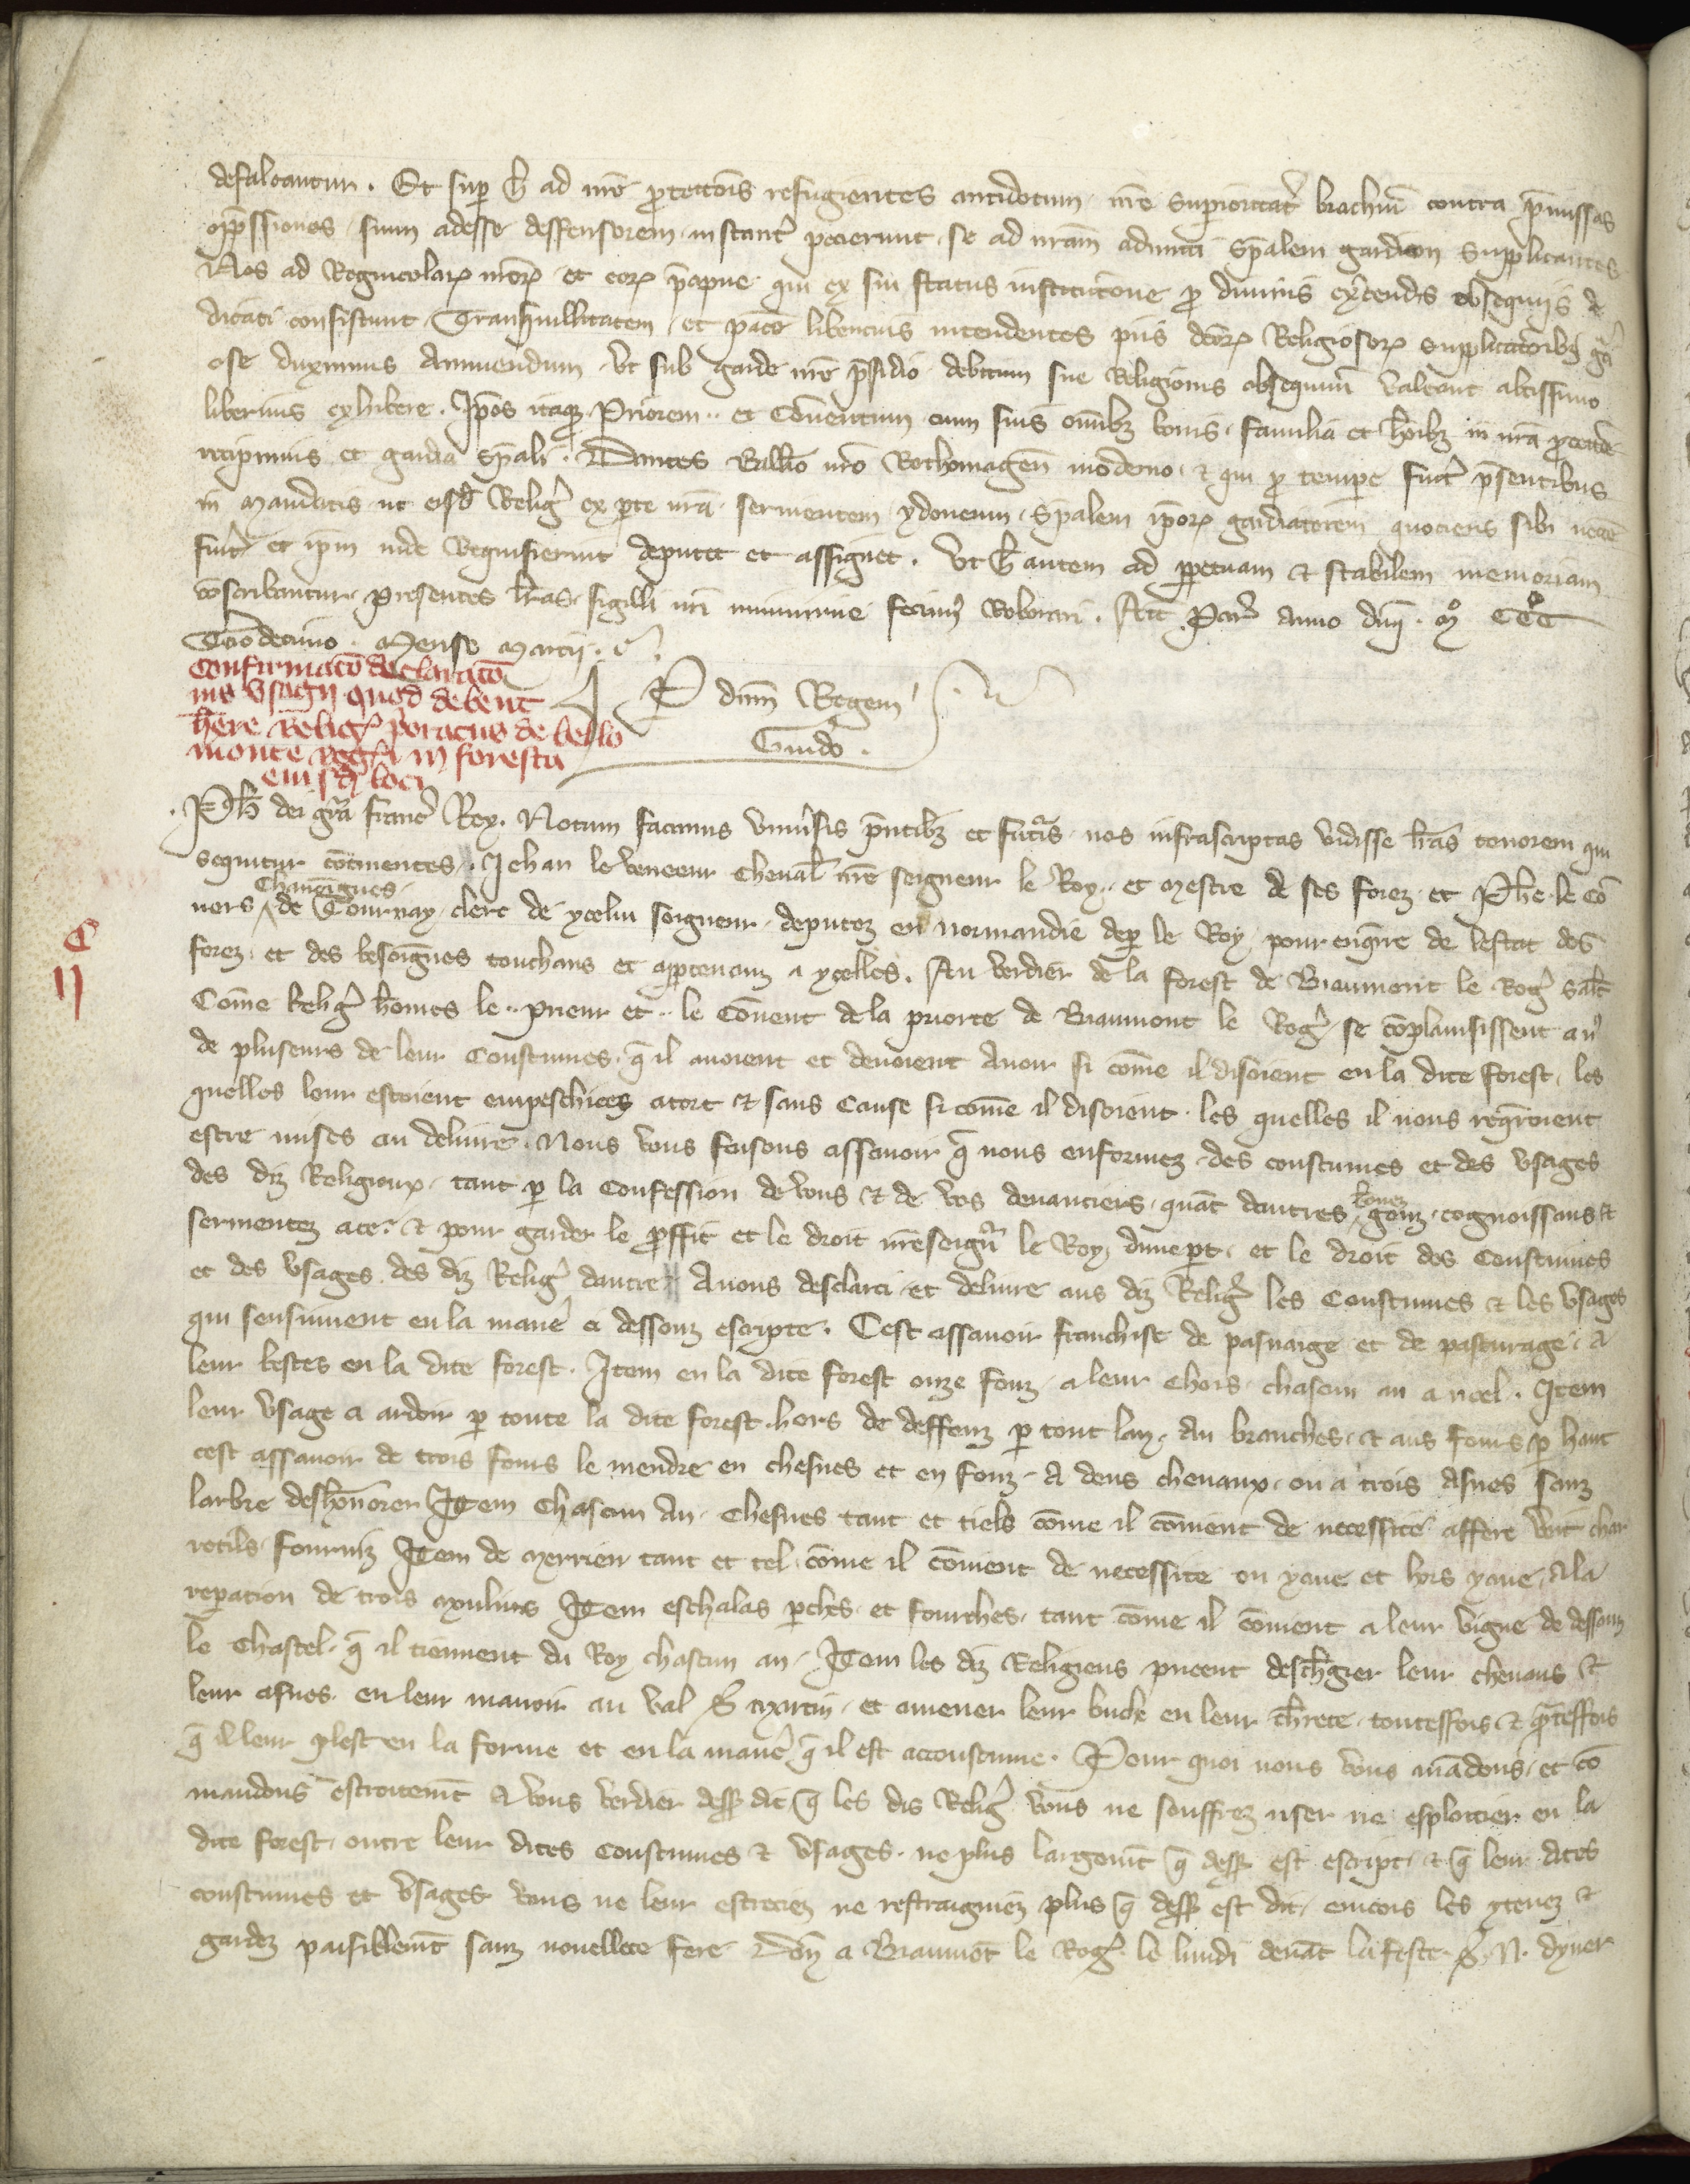 defalcantur. Et sup h ad nr̄e p̄tectōis refugientes antidotum nr̄e supioritatꝭ brachiū contra p̄missas
opp̄ssiones suum adesse deffensorem instantꝭ pecierunt se ad nr̄am admitti sp̄alem gardiam supplicantes
Nos ad Regnicolarꝝ nr̄orꝝ et eorꝝ p̄cipue qui ex sui status institucione pro diuinis exꝭcendis obsequiis de
dicati consistunt Tranquillitatem et pacē libencius intendentes piis dcōrꝝ Religiosorꝝ supplicacōibꝫ gᵃci
ose duximus Annuendum Vt sub garde nr̄e p̄sidio debitum sue Religionis obsequiū valeant altissimo
liberius exhibere. Ip̄os itaqꝫ Priorem .. et Conuentum cum suis om̄ibꝫ bonis familia et hōibꝫ in nr̄a p̄tectōe
recipimus et gardia sp̄ali. Dantes Ball̄io nr̄o Rothomageñ moderno & qui p̄ tempe fuꝭit p̄sentibus
in mandatis ut eisd̄ Religꝭ ex pte nr̄a seruientem ydoneum sp̄alem ip̄orꝝ gardiatorem quociens sibi necē
fuꝭit et ip̄m inde Requisierint deputet et assignet. Vt h autem ad ppetuam et stabilem memoriam
conscribantur presentes lr̄as sigilli nr̄i munimine fecimꝰ Roborari. Act̄ Parꝭ anno dn̄i. mo CCC
Tcio decimo. Mense Marcii.
Confirmacō declaracō
nis vsagii quod debent
h̄ere Religꝭ p̄oratus de bello
monte Rogꝭi in foresta
eiusd̄ loci
P dn̄m Regem
Guido.
Ph̄ dei gr̄a francꝭ Rex. Notum facimus vniuꝭsis p̄ntibꝫ et futꝭis nos infrascriptas vidisse lr̄as tenorem qui
sequitur cōtinentes. Jehan le veneeur cheual̄ nr̄e seigneur le Roy .. et mestre de ses forez et Ph̄e le cō
Chanoignes
uers de Tournay clerc de ycelui seigneur deputez en normandie dep le Roy pour enq̄rre de lestat des
C
II
forez et des besoignes touchans et apptenanz a ycelles. Au verdier de la forest de Biaumont le Rogꝭ sal̄t
Cōme Religꝭ hōmes le .. prieur et .. le Cōuent de la priorte de Biaumont le Rogꝭ se cōplainsissent a nꝰ
de pluseurs de leur coustumes q̄ il auoient et deuoient auoir si cōme il disoient en la dite forest, les
quelles leur estoient empeschiees atort & sans cause si cōme il disoient les quelles il nous reqꝭroient
estre mises au deliure. Nous vous fesons assauoir q̄ nous enformez des coustumes et des vsages
des diz Religieux tant p la confession de vous & de vos deuanciers quāt dautres bones genz cognoissans et
sermentez ace. & pour garder le proffit et le droit nr̄eseignr̄ le Roy dune pt et le droit des coustumes
et des vsages des diz Religꝭ dautre Auons desclarci et deliure aus diz Religꝭ les coustumes & les vsages
qui sensiuent en la maneꝭ ci dessouz escripte. Cest assauoir franchise de pasnaige et de pasturage a
leur bestes en la dite forest. Item en la dite forest onze fouz a leur chois chascun an a noel. Item
leur vsage a ardoir p toute la dite forest hors de deffenz p tout lan, Au branches & aus fours p haut
cest assauoir de trois fours le mendre en chesnes et en fouz A deus cheuaux ou a trois Asnes sanz
larbre deshōnorer Item chascun an chesnes tant et tiels cōme il cōuient de necessite affere vint char
retils fourniz Item de merrien tant et tel cōme il cōuient de necessite en yaue et hors yaue, A la
repation de trois moulins Item eschalas pches et fourches, tant cōme il cōuient a leur vigne de dessouz
le chastel q̄ il tiennent du Roy chascun an. Item les diz Religieus pueent deschꝭgier leur cheuaus &
leur asnes en leur manoir au val S̄ martin et amener leur buche en leur chꝭrete toutesfois & q̄ntesfois
q̄ il leur plest en la forme et en la maneꝭ q̄ il est acoustume. Pour quoi nous vous mādons et cō
mandons estroitemt̄ A vous verdier dessꝰ dit q̄ les dis Religꝭ vous ne souffrez user ne esploitier en la
dite forest outre leur dites coustumes & vsages ne plus largemt̄ q̄ dessꝰ est escript & q̄ leur dites
coustumes et vsages vous ne leur estreciez ne restraigniez plus q̄ dessꝰ est dit, encois les y tenez &
gardez paisiblemt̄ sanz nouellete fere Don̄ a Biaumōt le Rogꝭ le lundi deuāt la feste S̄ N. dyuer